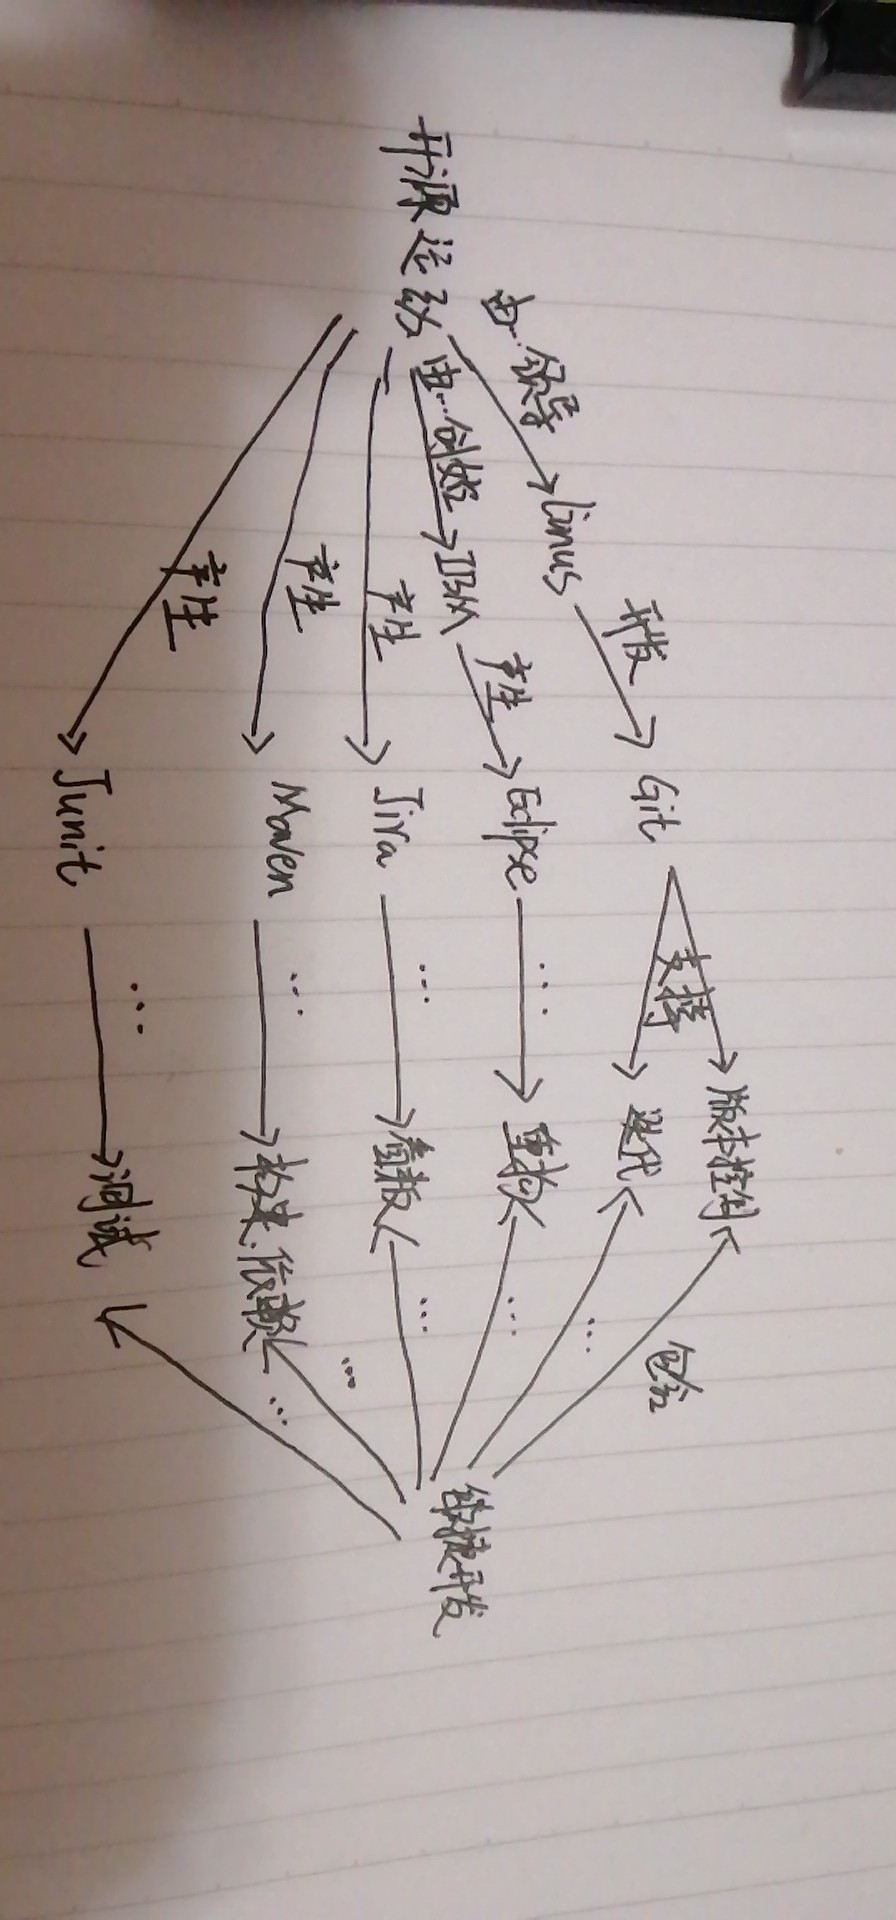 开源运动
由…领导
Linus
开发
Git
支持
版本控制
迭代
由…创始
IBM
产生
Eclipse
…
重构
产生
Jira
…
看板
产生
Maven
…
构建.依赖
产生
Junit
…
测试
包含
…
…
…
…
…
敏捷开发